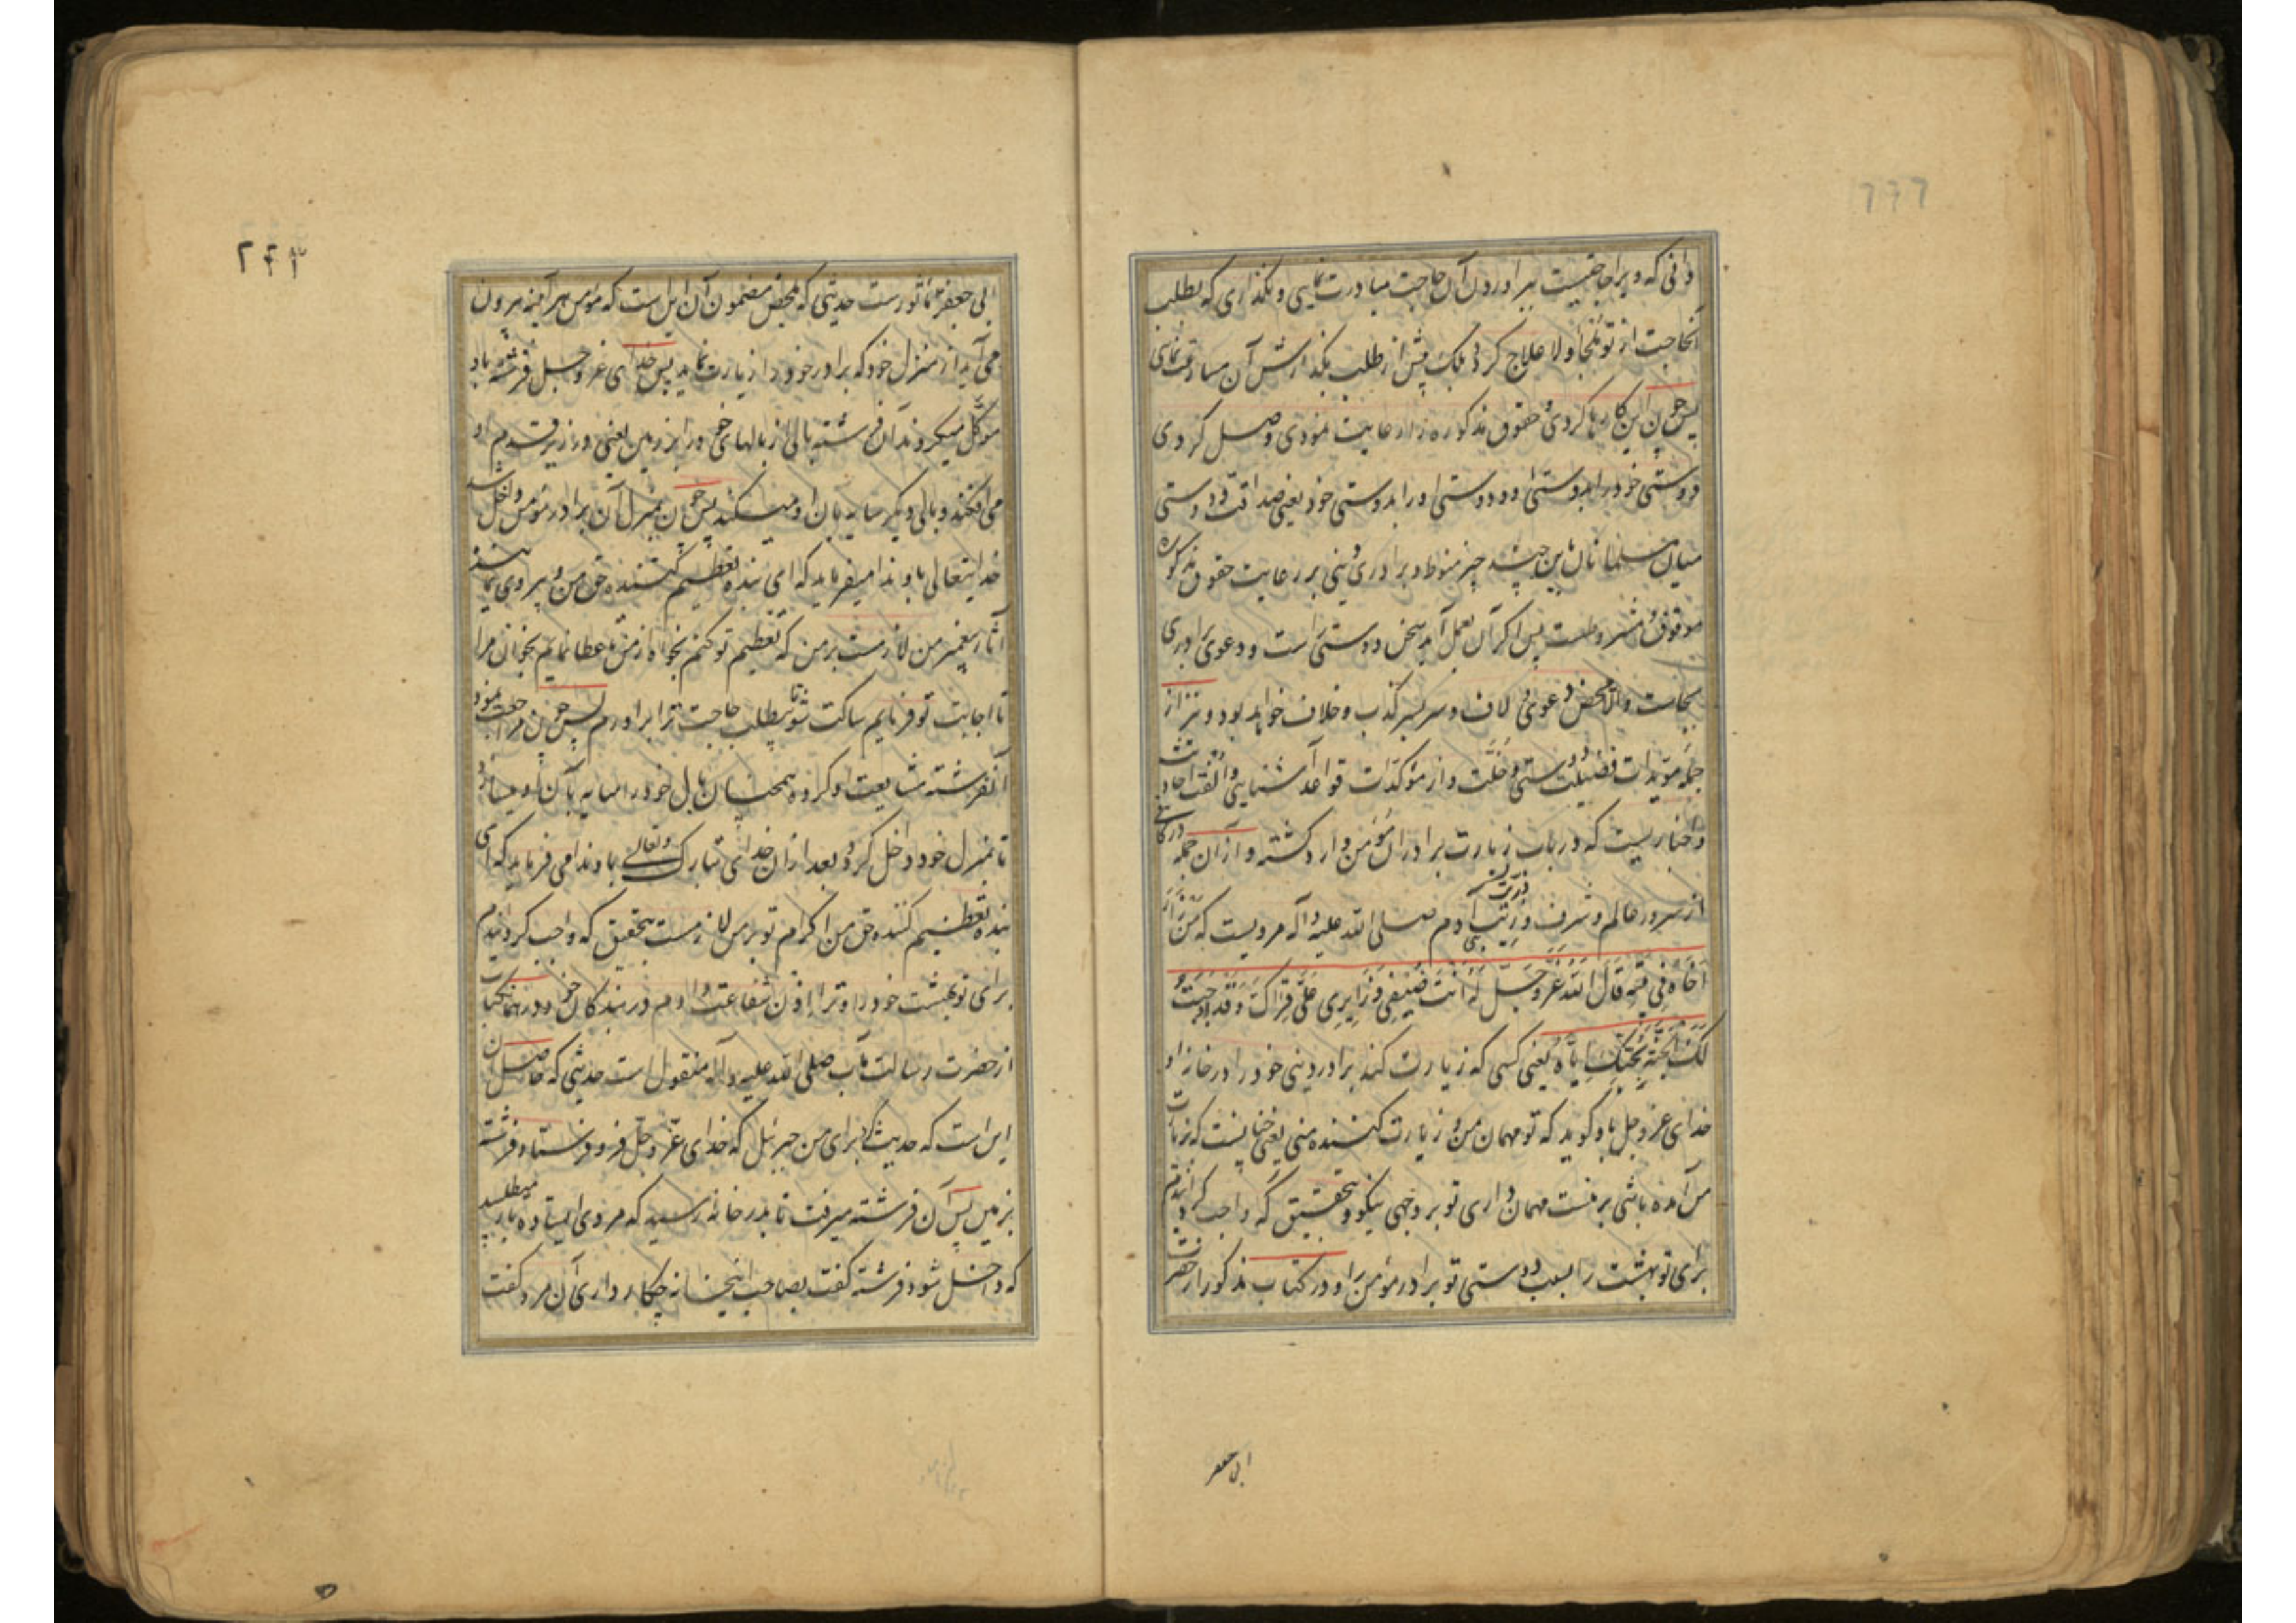 دانی که ویرا حاجتیست ببراوردن آن حاجت مبادرت نمایی و نگذاری که بطلب
آنحاجت از تو ملجأ و لاعلاج کردد بلکه پیش از طلب بگذارش آن مسارعت نمای
پس چون این کارها کردی و حقوق مذکوره را رعایت نمودی وصل کردی
دوستی خود را بدوستی او و دوستی او را بدوستی خود یعنی صداقت و دوستی
میان مسلمانان باین چند چیز منوط و برادری دینی بر رعایت حقوق مذکوره
موقوف و مشروطست پس اگر آن بعمل آید سخن دوستی راست و دعوی برادری
بجاست والا محض دعوی و لاف و سربسر کذب و خلاف خواهد بود و نیز از
جمله مؤیدات فضیلت دوستی و خلّت و از مؤکدّات قواعد آشنایی و الفت احادیث
و اخباریست که در باب زیارت برادران مؤمن وارد گشته و از آن جمله در کافی
از سرور عالم و شرف ذریّت بنی آدم صلی الله علیه و آله مرویست که مَنْ زَارَ
اَخَاهُ فِی بَیْتِهِ قَالَ اللهُ عَزَّ وَجَلَّ لَهُ اَنْتَ ضَیْفِی وَ زَایِرِی عَلَیَّ قِرَاکَ وَ قَدْ اَوْجَبْتُ
لَکَ الْجَنَّةَ بِحُبِّکَ اِیَّاهُ یعنی کسی که زیارت کند برادر دینی خود را در خانه او
خدای عز و جل باو گوید که تو مهمان من و زیارت کننده منی یعنی چنانست که بزیارت
من آمده باشی بر منست مهمان داری تو بر وجهی نیکو و بتحقیق که واجب گردانیدم
برای تو بهشت را بسبب دوستی تو برادر مؤمن را و در کتاب مذکور از حضرت
ابی جعفر
۲۴۳
ابی جعفر ع مأثورست حدیثی که ملخص مضمون آن این است که مؤمن هر آینه بیرون
می آید از منزل خود که برادر خود را زیارت نماید پس خدای عز و جل فرشته باو
موکّل میگرداند آن فرشته بالی از بالهای خود را بر زمین یعنی در زیر قدم او
می افکند و بالی دیگر سایه بان او میکند پس چون بمنزل آن برادر مؤمن داخل شد
خدایتعالی باو ندا میفرماید که ای بنده تعظیم کننده حق من و پیروی نماینده
آثار پیغمبر من لازمست بر من که تعظیم تو کنم بخواه از من تا عطا نمایم بخوان مرا
تا اجابت تو فرمایم ساکت شو تا بیطلب حاجت ترا براورم پس چون مراجعت نمود
آنفرشته مشایعت او کرده همچنان بال خود را سایه بان او میسازد
تا بمنزل خود داخل گردد بعد از آن خدای تبارک و تعالی باو ندا می فرماید که ای
بنده تعظیم کننده حق من اکرام تو بر من لازمست بتحقیق که واجب گردانیدم
برای تو بهشت خود را و ترا اذن شفاعت دادم در بندگان خود و در همان کتاب
از حضرت رسالت مآب صلی الله علیه و آله منقول است حدیثی که حاصلش
این است که حدیث کرد برای من جبرئیل که خدای عزّ و جلّ فرو فرستاد فرشته
بزمین پس آن فرشته میرفت تا بدر خانه رسید که مردی ایستاده بار میطلبید
که داخل شود فرشته گفت بصاحب اینخانه چکار داری آن مرد گفت